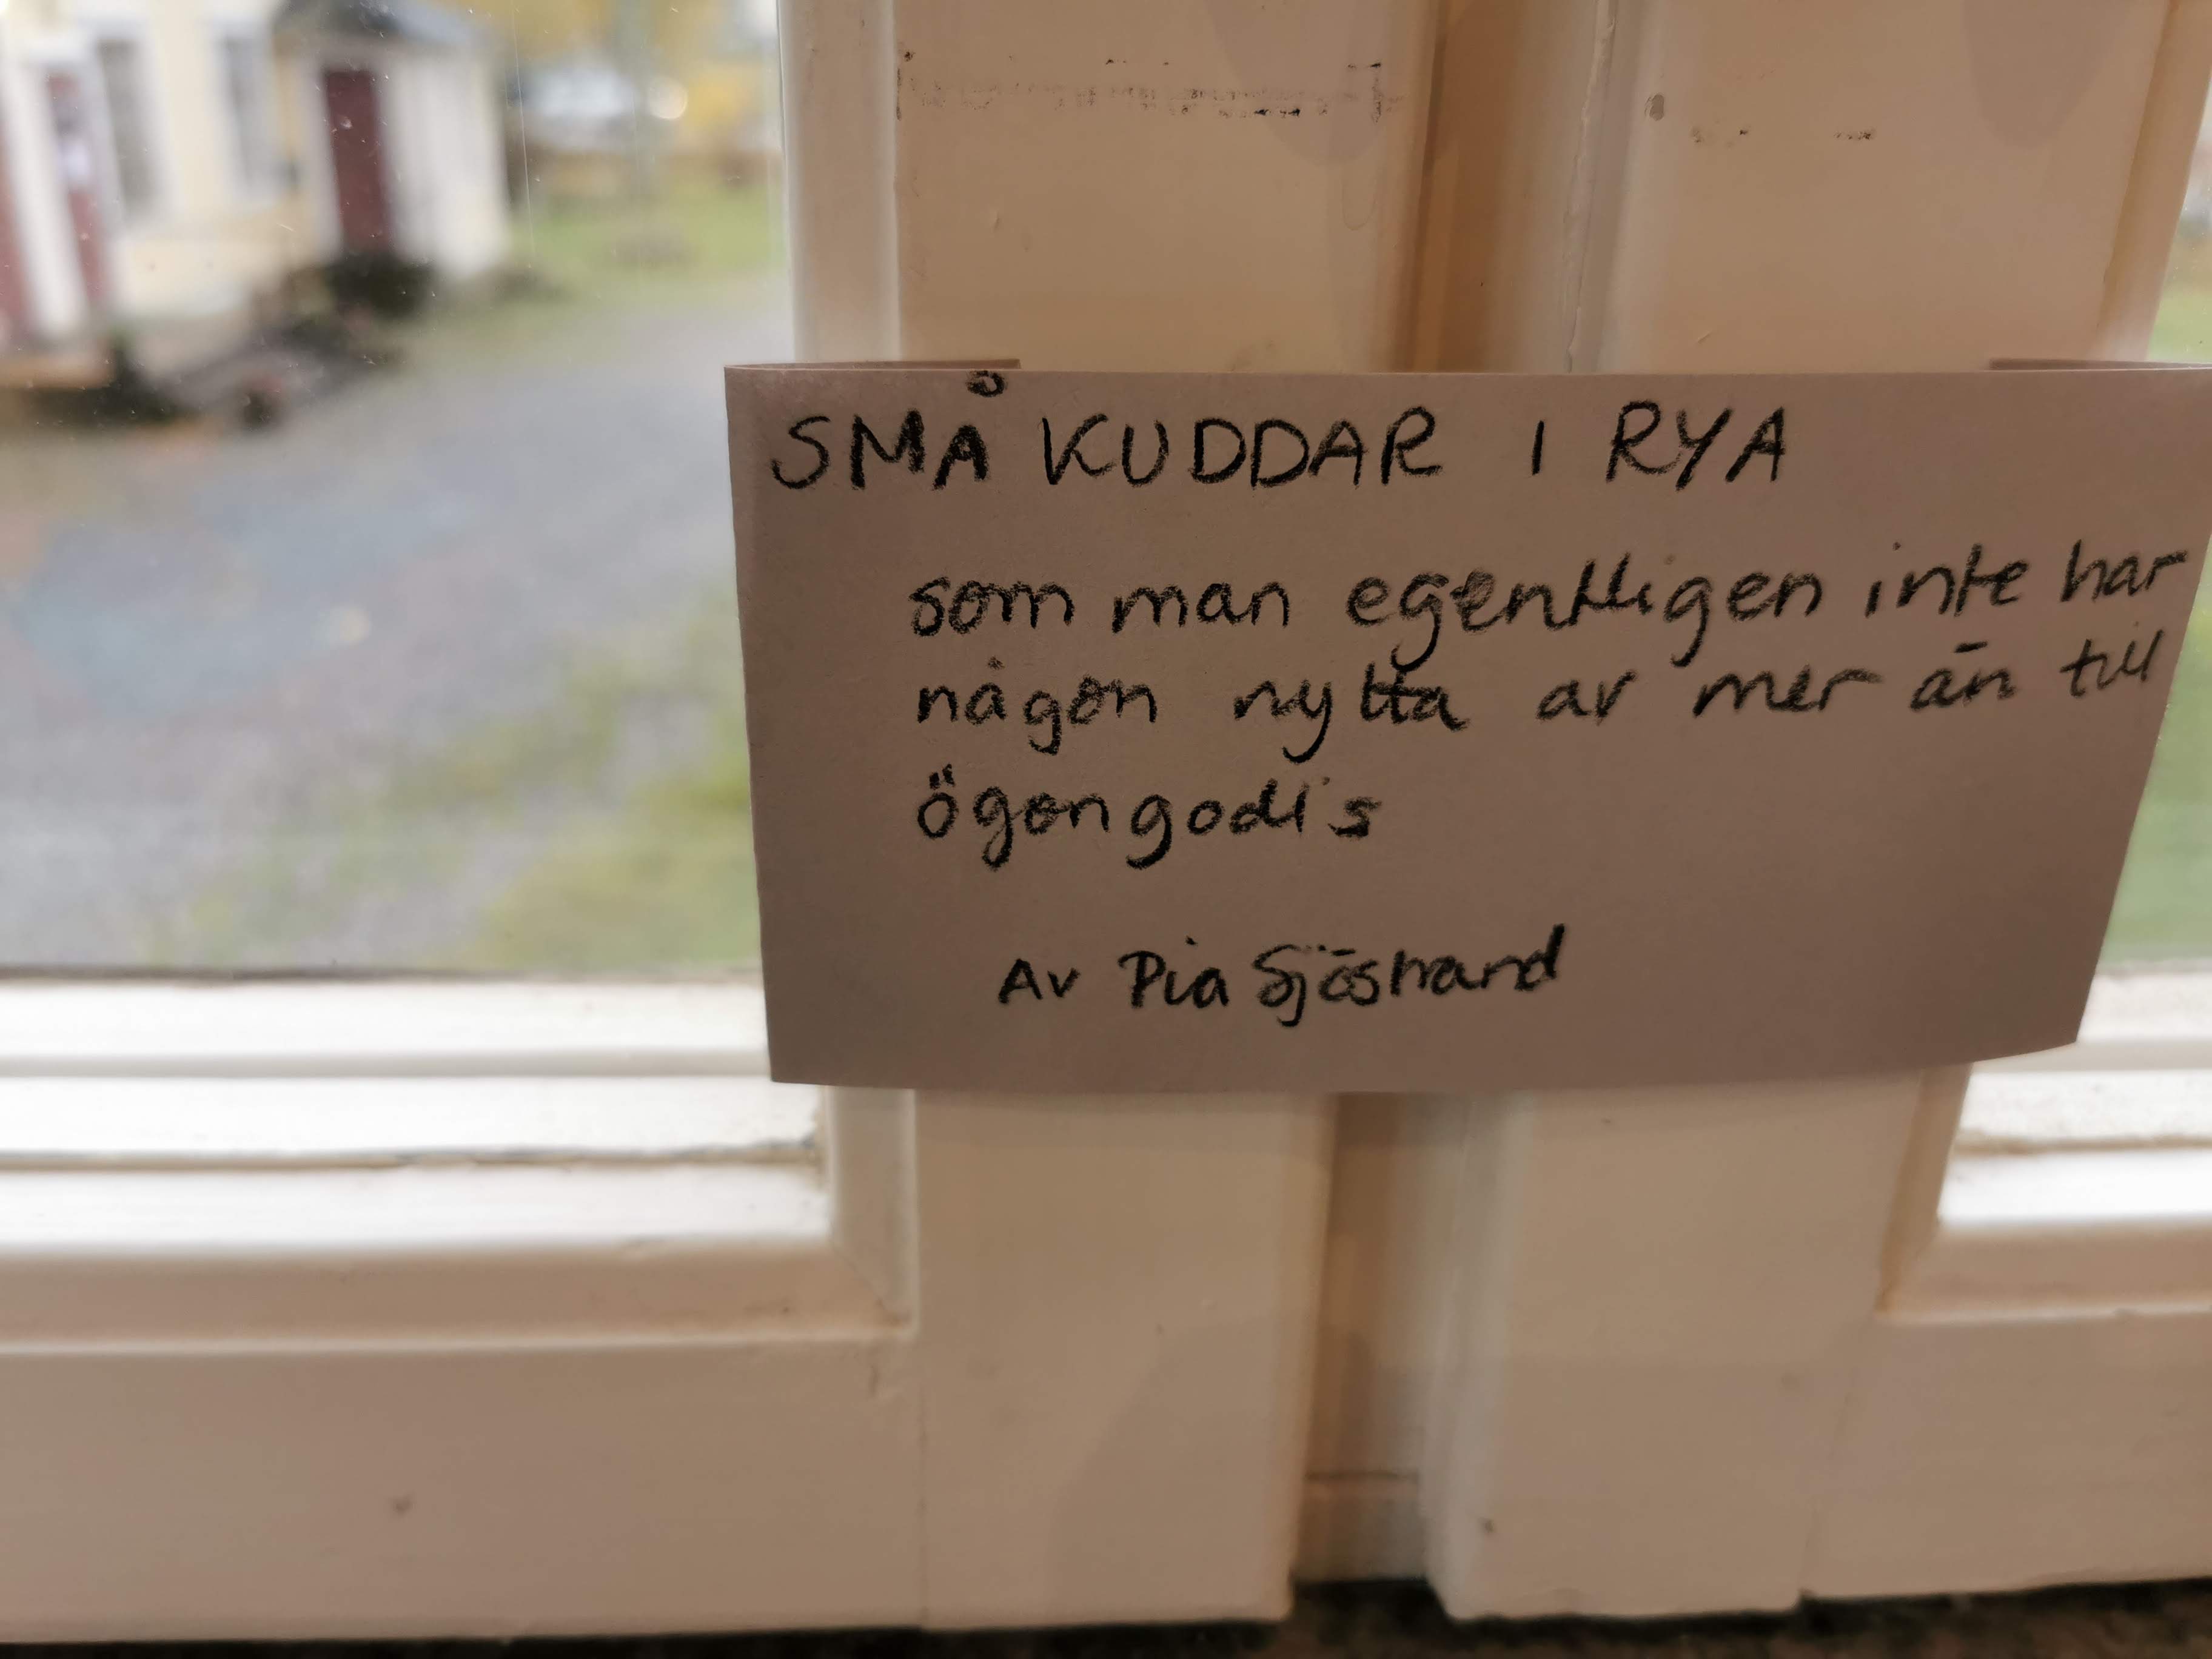 SMÅ KUDDAR I RYA
som man egentligen inte har
någon nytta av mer än till
ögongodis
Av Pia Sjöstrand